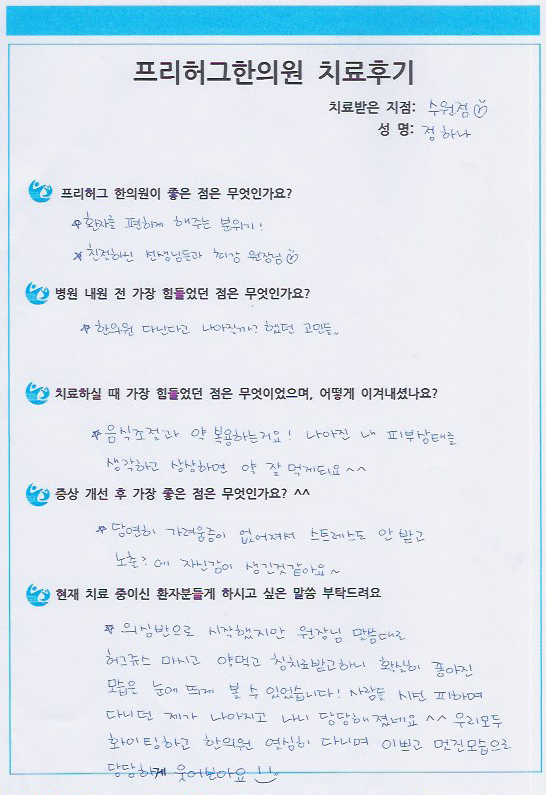 프리허그한의원 치료후기
치료받은 지점: 수원점
성 명: 정하나
프리허그 한의원이 좋은 점은 무엇인가요?
환자를 편하게 해주는 분위기!
친절하신 선생님들과 최강 원장님
병원 내원 전 가장 힘들었던 점은 무엇인가요?
한의원 다닌다고 나아질까? 했던 고민들..
치료하실 때 가장 힘들었던 점은 무엇이었으며, 어떻게 이겨내셨나요?
음식조절과 약 복용하는거요! 나아진 내 피부상태를
생각하고 상상하면 약 잘 먹게되요 ^^
증상 개선 후 가장 좋은 점은 무엇인가요? ^^
당연히 가려움증이 없어져서 스트레스도 안 받고
노출?에 자신감이 생긴것같아요~
현재 치료 중이신 환자분들게 하시고 싶은 말씀 부탁드려요
의심반으로 시작했지만 원장님 말씀대로
허그쥬스 마시고 약먹고 침치료받고하니 확실히 좋아진
모습은 눈에 띄게 볼 수 있었습니다! 사람들 시선 피하며
다니던 제가 나아지고 나니 당당해졌네요 ^^ 우리모두
화이팅하고 한의원 열심히 다니며 이쁘고 멋진모습으로
당당하게 웃어보아요